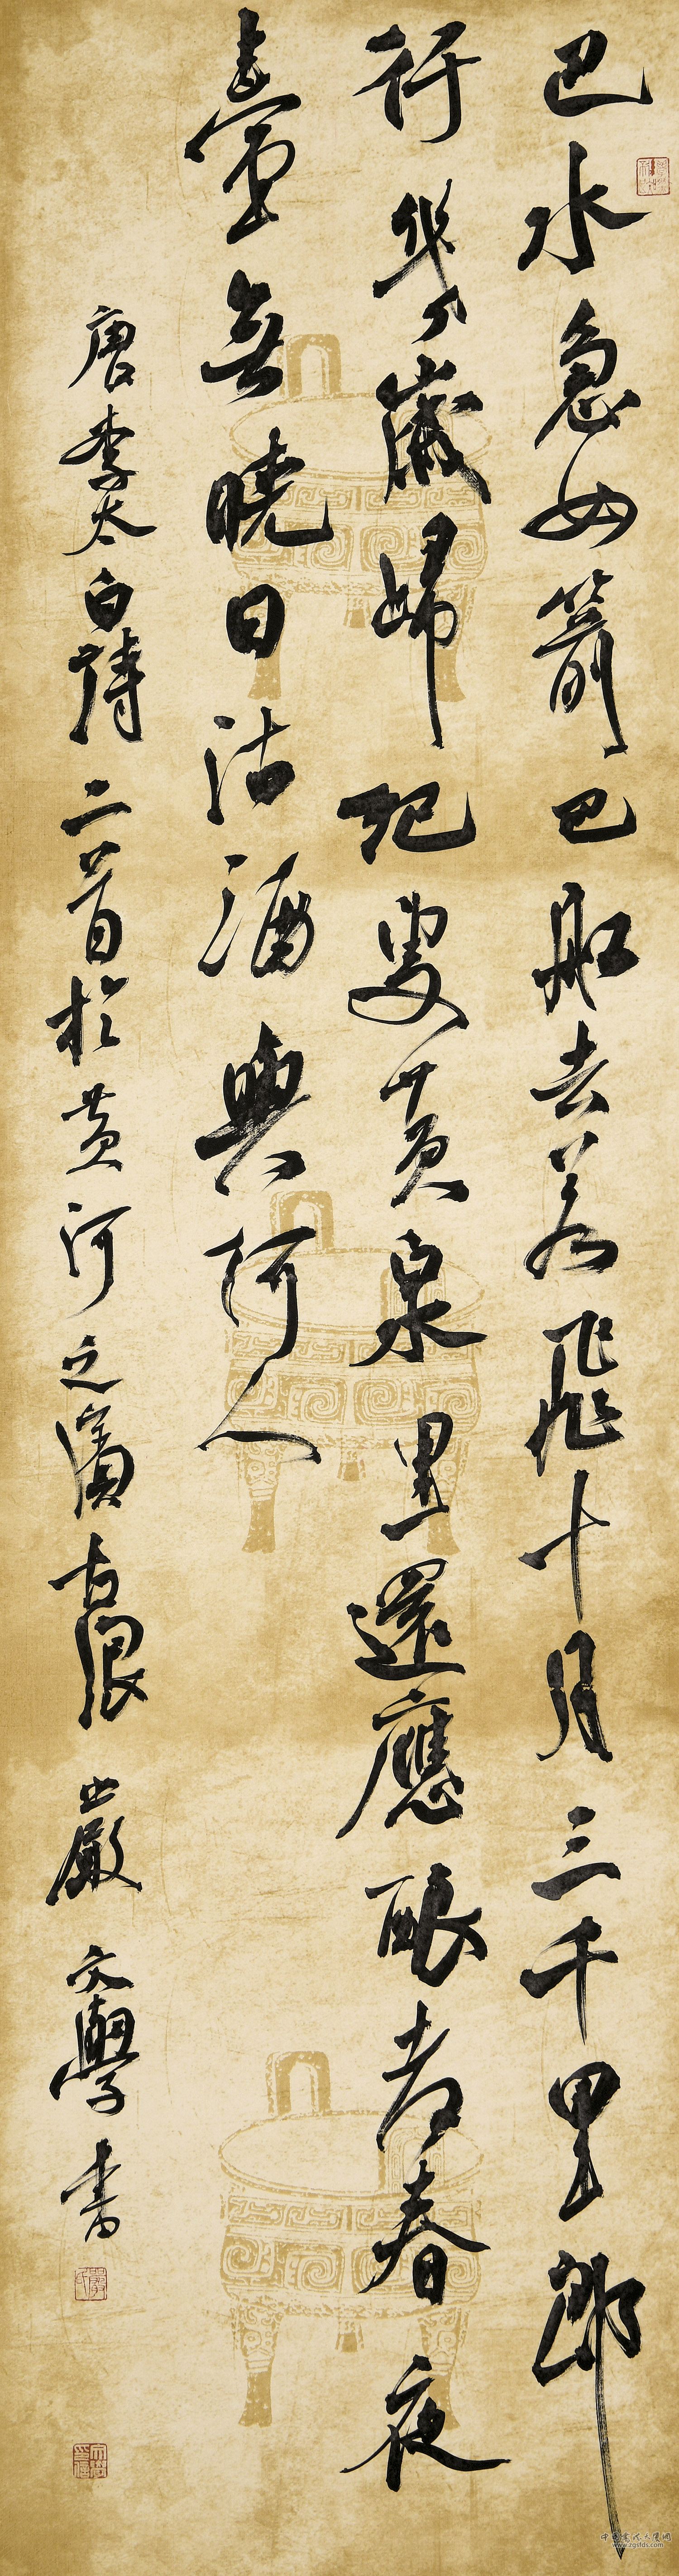 巴水急如箭巴船去若飛十月三千里郎
行幾歲歸紀叟黃泉里還應釀老春夜
臺無曉日沽酒與何人
唐李太白詩二首於黃河之濱古 嚴文學書
www.zgsfds.com